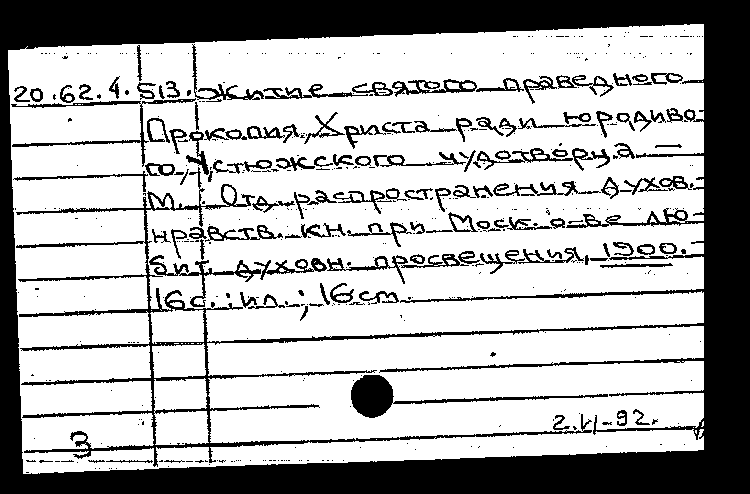 20.62.4.513. Житие святого праведного
Прокопия, Христа ради юродиво-
го, Устюжского чудотворца —
М.: Отд. распространения духов.-
нравств. кн. при Моск. о-ве лю-
бит. духовн. просвещения, 1900.-
16с.: ил.; 16см.
2.VI-92.
3